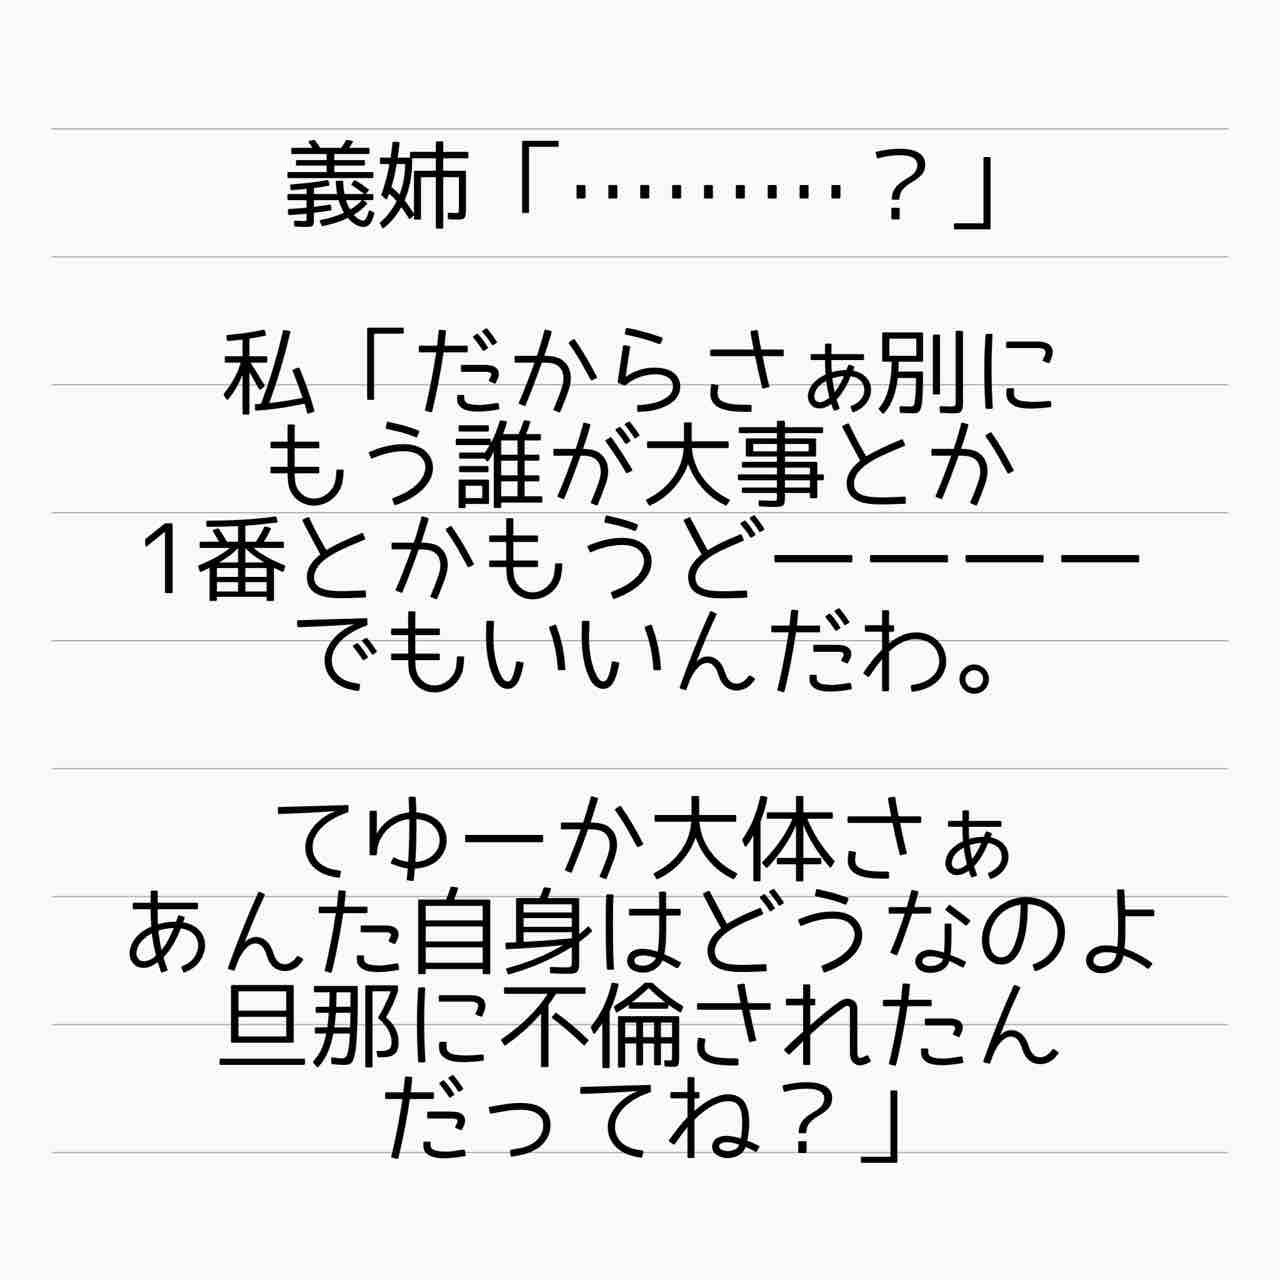 義姉「………？」
私「だからさぁ別に
もう誰が大事とか
1番とかもうどーーーー
でもいいんだわ。
てゆーか大体さぁ
あんた自身はどうなのよ
旦那に不倫されたん
だってね？」